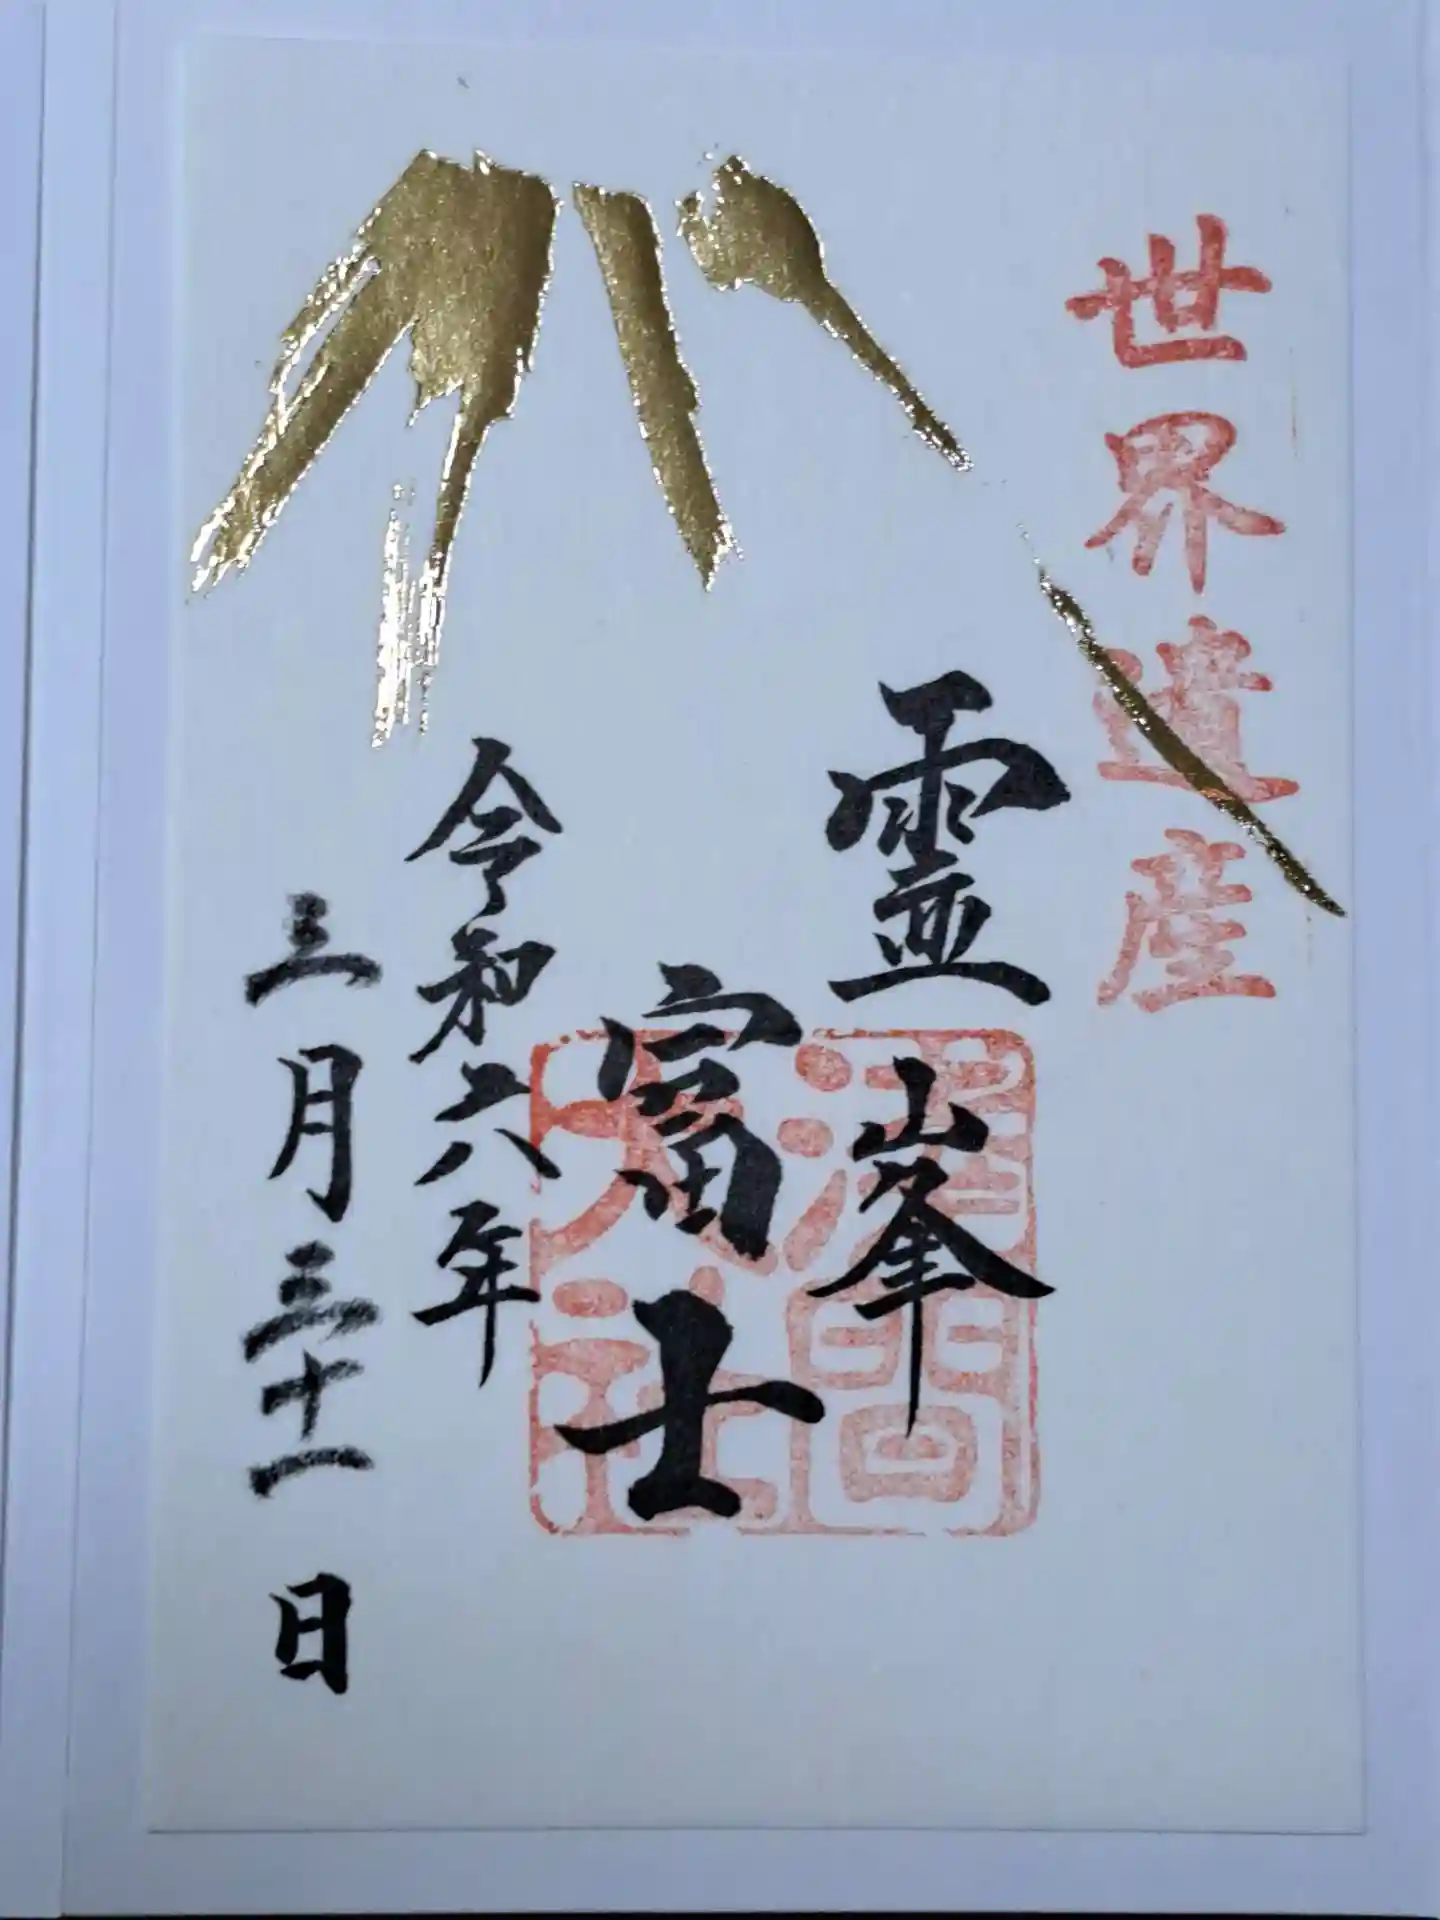 世界遺産
霊峯
富士
浅間
大社
令和六年
三月三十一日